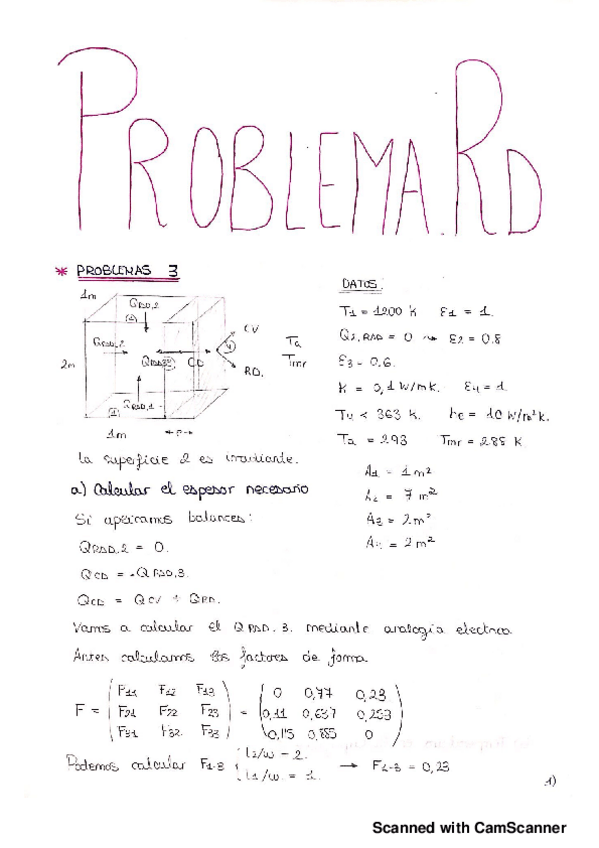 PROBLEMA.RD
* PROBLEMAS 3
DATOS:
1m
QRAD,2
CV
QRAD,2
CD
Ta
Tmr
2m
RD.
QRAD,1
1m
T1 = 1200 K ε1 = 1.
Q2,RAD = 0 ⇝ ε2 = 0.8
ε3 = 0.6.
K = 0,1 W/mK. ε4 = 1
T4 < 363 K. hc = 10 W/m²K.
Ta = 293 Tmr = 288 K
A1 = 1 m²
A2 = 7 m²
A3 = 2 m²
A4 = 2 m²
La superficie 2 es irradiante.
a) Calcular el espesor necesario
Si aplicamos balances:
QRAD,2 = 0.
QCD = -QRAD,3.
QCD = QCV + QRD.
Vamos a calcular el QRAD,3. mediante analogía electrica
Antes calculamos los factores de forma.
F = (F11 F12 F13 = (0 0,77 0,23
F21 F22 F23 0,11 0,637 0,253
F31 F32 F33) 0,115 0,885 0)
Podemos calcular F1-3 { L2/w = 2. L1/w = 1. → F1-3 = 0,23
1)
Scanned with CamScanner